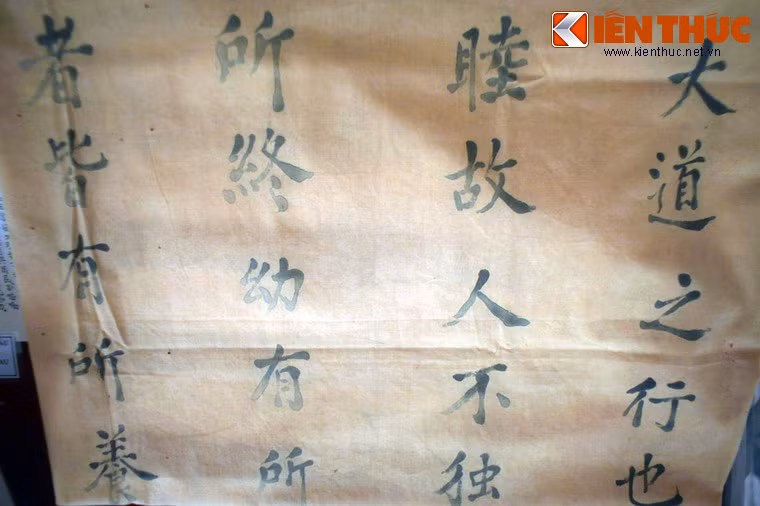 KIẾN THỨC
www.kienthuc.net.vn
大道之行也
睦故人不独
所終幼有所
者皆有所養